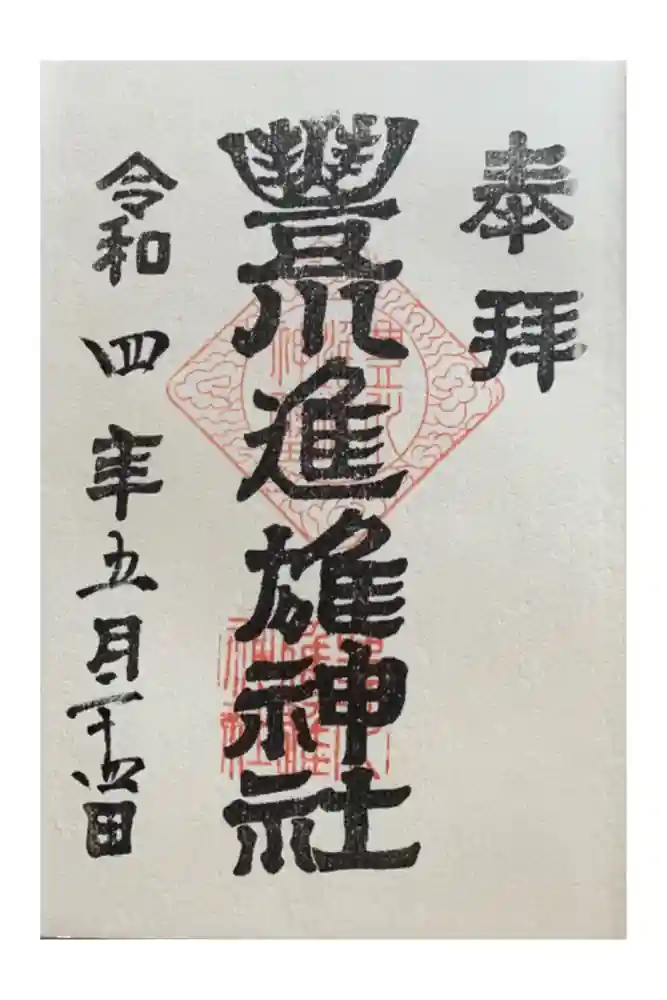 奉拝
豐川進雄神社
令和四年五月二十四日